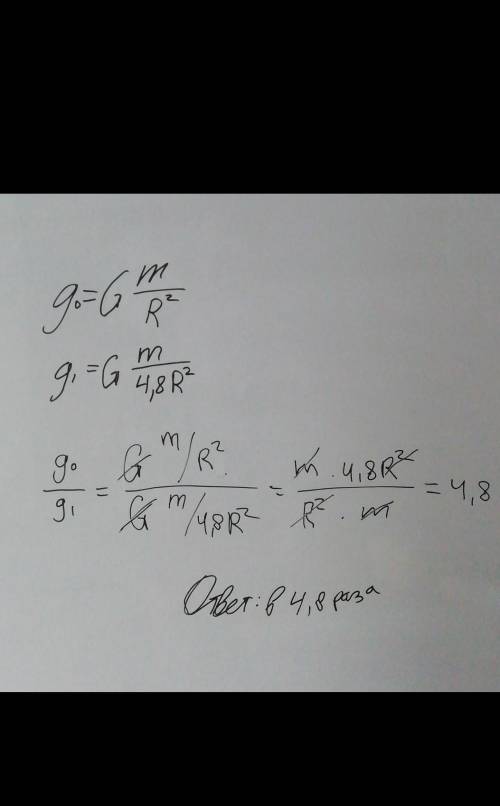 g₀ = G m/R²
g₁ = G m/4,8R²
g₀/g₁ = (G m/R²)/(G m/4,8R²) = (m · 4,8R²)/(R² · m) = 4,8
Ответ: в 4,8 раза